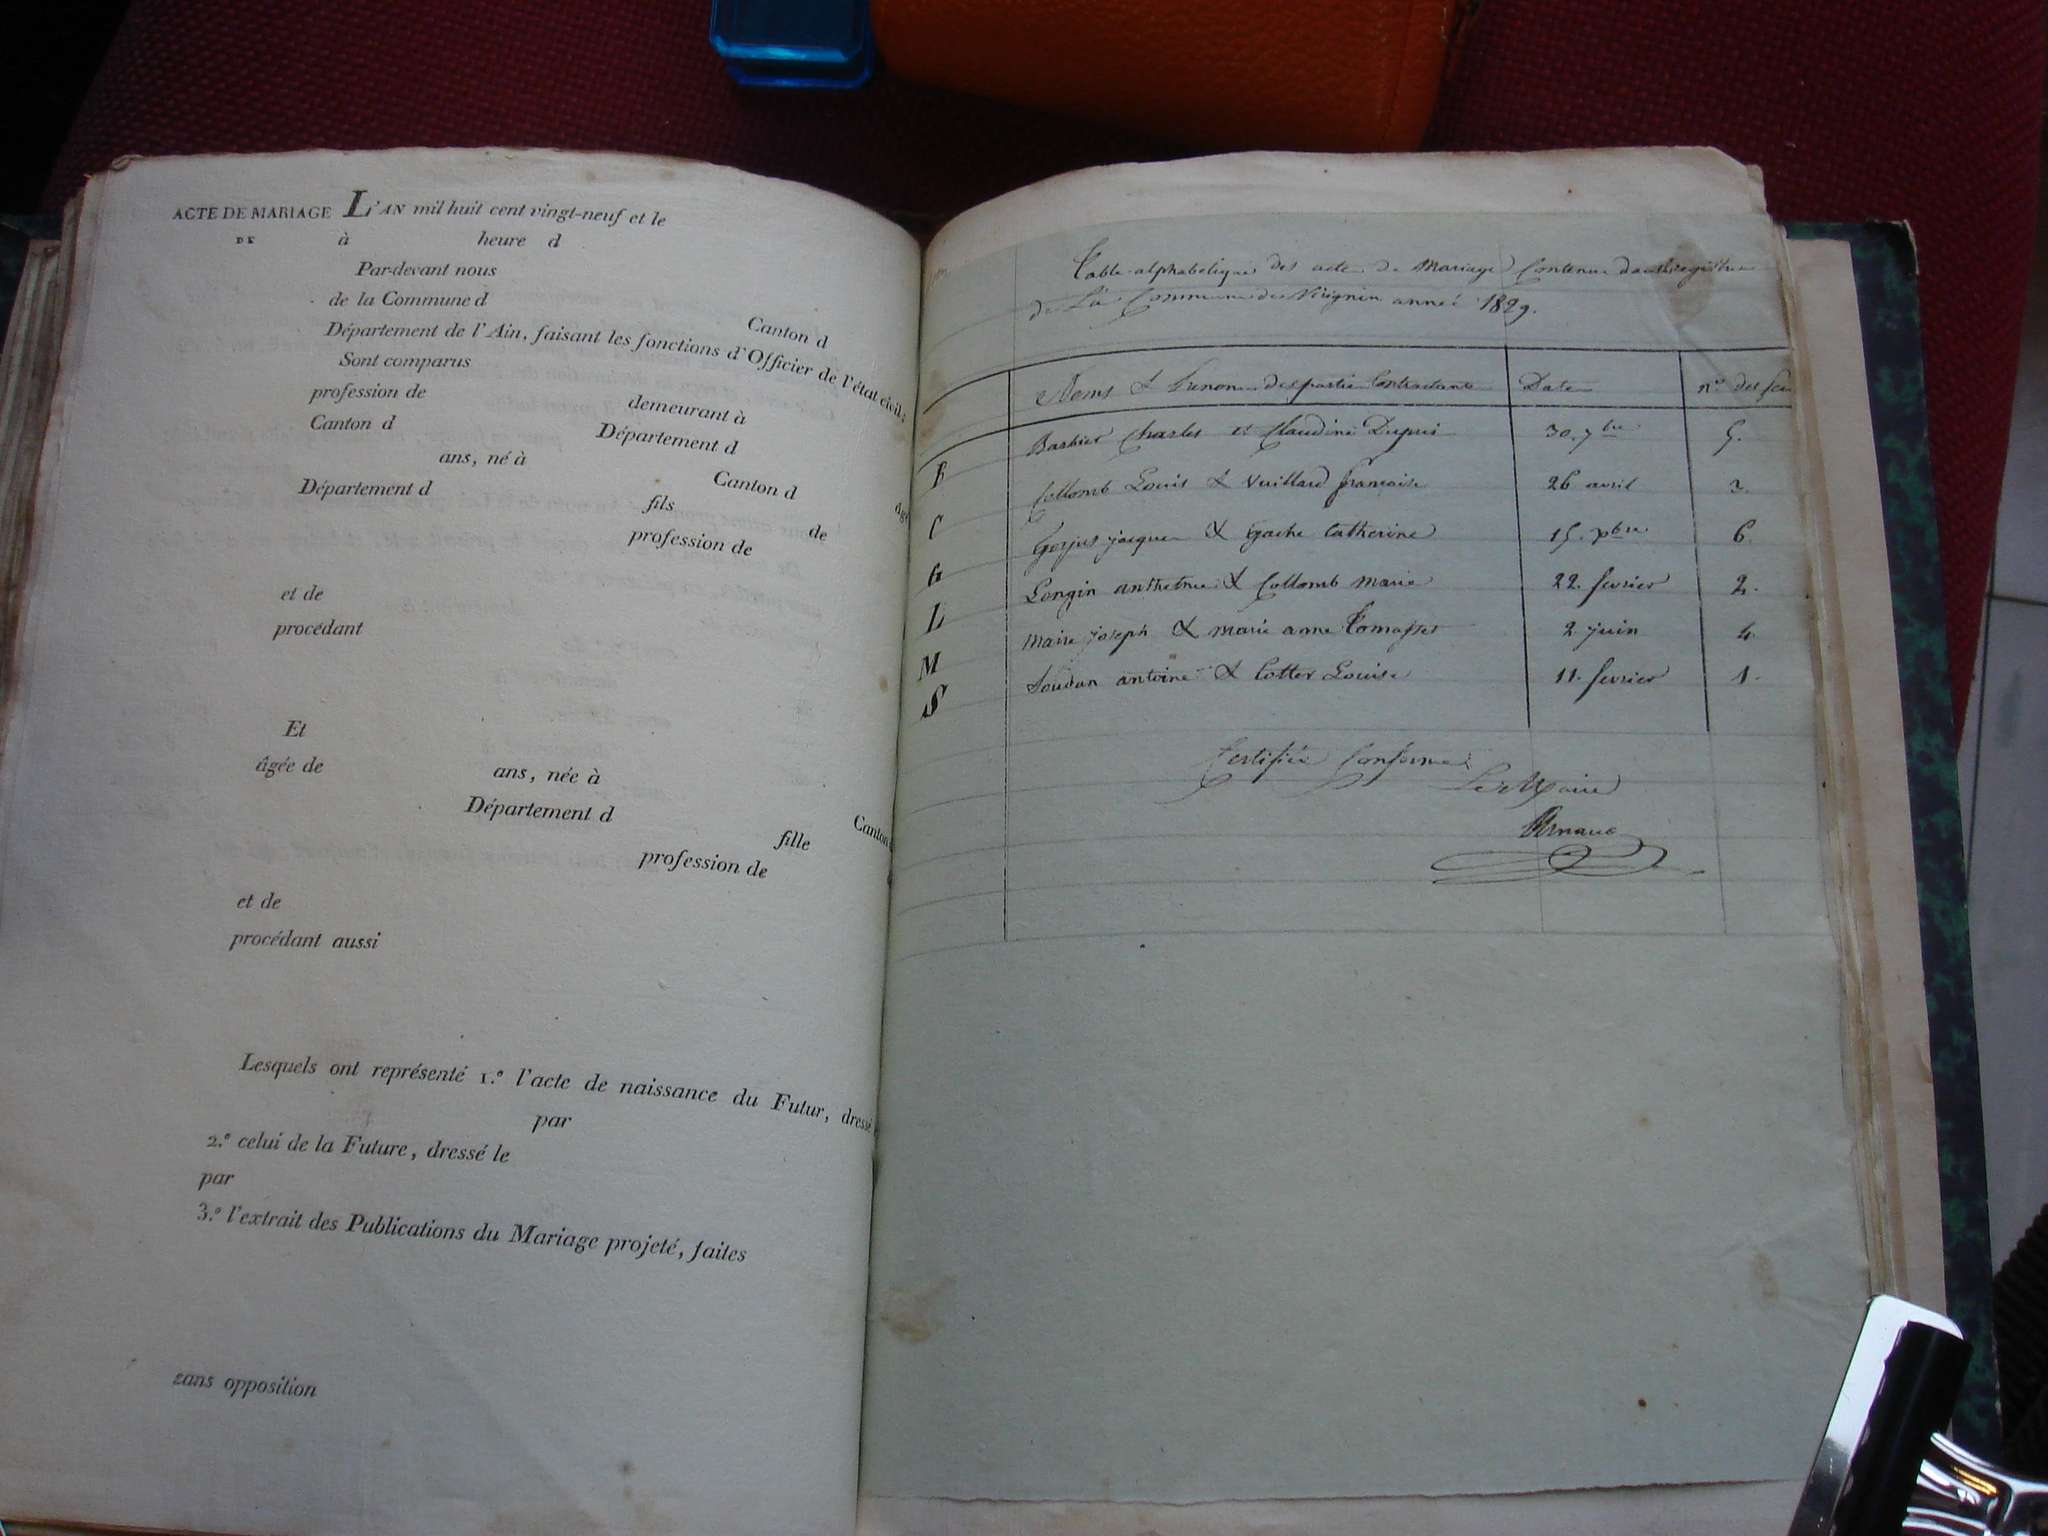 ACTE DE MARIAGE L'AN mil huit cent vingt-neuf et le
DE à heure d
Par-devant nous
de la Commune d Canton d
Département de l'Ain, faisant les fonctions d'Officier de l'état civil;
Sont comparus
profession de demeurant à
Canton d Département d
ans, né à Canton d âgé
Département d fils de
profession de
et de
procédant
Et
âgée de ans, née à
Département d Canton
fille
profession de
et de
procédant aussi
Lesquels ont représenté 1.º l'acte de naissance du Futur, dressé
par
2.º celui de la Future, dressé le
par
3.º l'extrait des Publications du Mariage projeté, faites
sans opposition
Table alphabetique des acte de Mariage Contenu
de La Commune de Virignin année 1829.
Noms & Prenom des partie Contractante Date nº des feu
B Barbier Charles et Claudine Dupui 30. 7bre 5.
C Collomb Louis & Vuillard francoise 26 avril 3.
G Gojus jacque & gache Catherine 15. xbre 6.
L Longin anthelme & Collomb marie 22. fevrier 2.
M Maire joseph & marie anne Tomasset 2 juin 4.
S Soudan antoine & Cotter Louise 11. fevrier 1.
Certifié Conforme
Le Maire
Arnaud